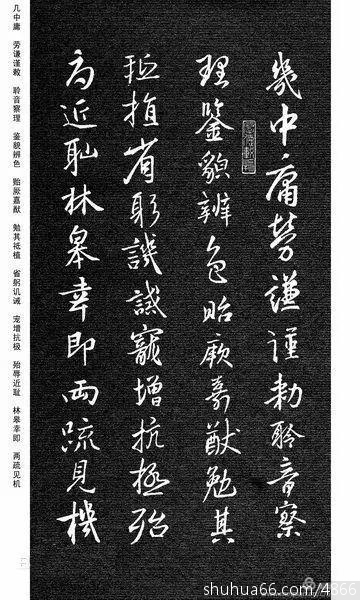 幾中庸勞謙謹勅聆音察
理鑒貌辨色貽厥嘉猷勉其
祗植省躬譏誡寵增抗極殆
辱近耻林皋幸即兩疏見機
几中庸 劳谦谨敕 聆音察理 鉴貌辨色 贻厥嘉猷 勉其祗植 省躬讥诫 宠增抗极 殆辱近耻 林皋幸即 两疏见机
shuhua66.com/4866